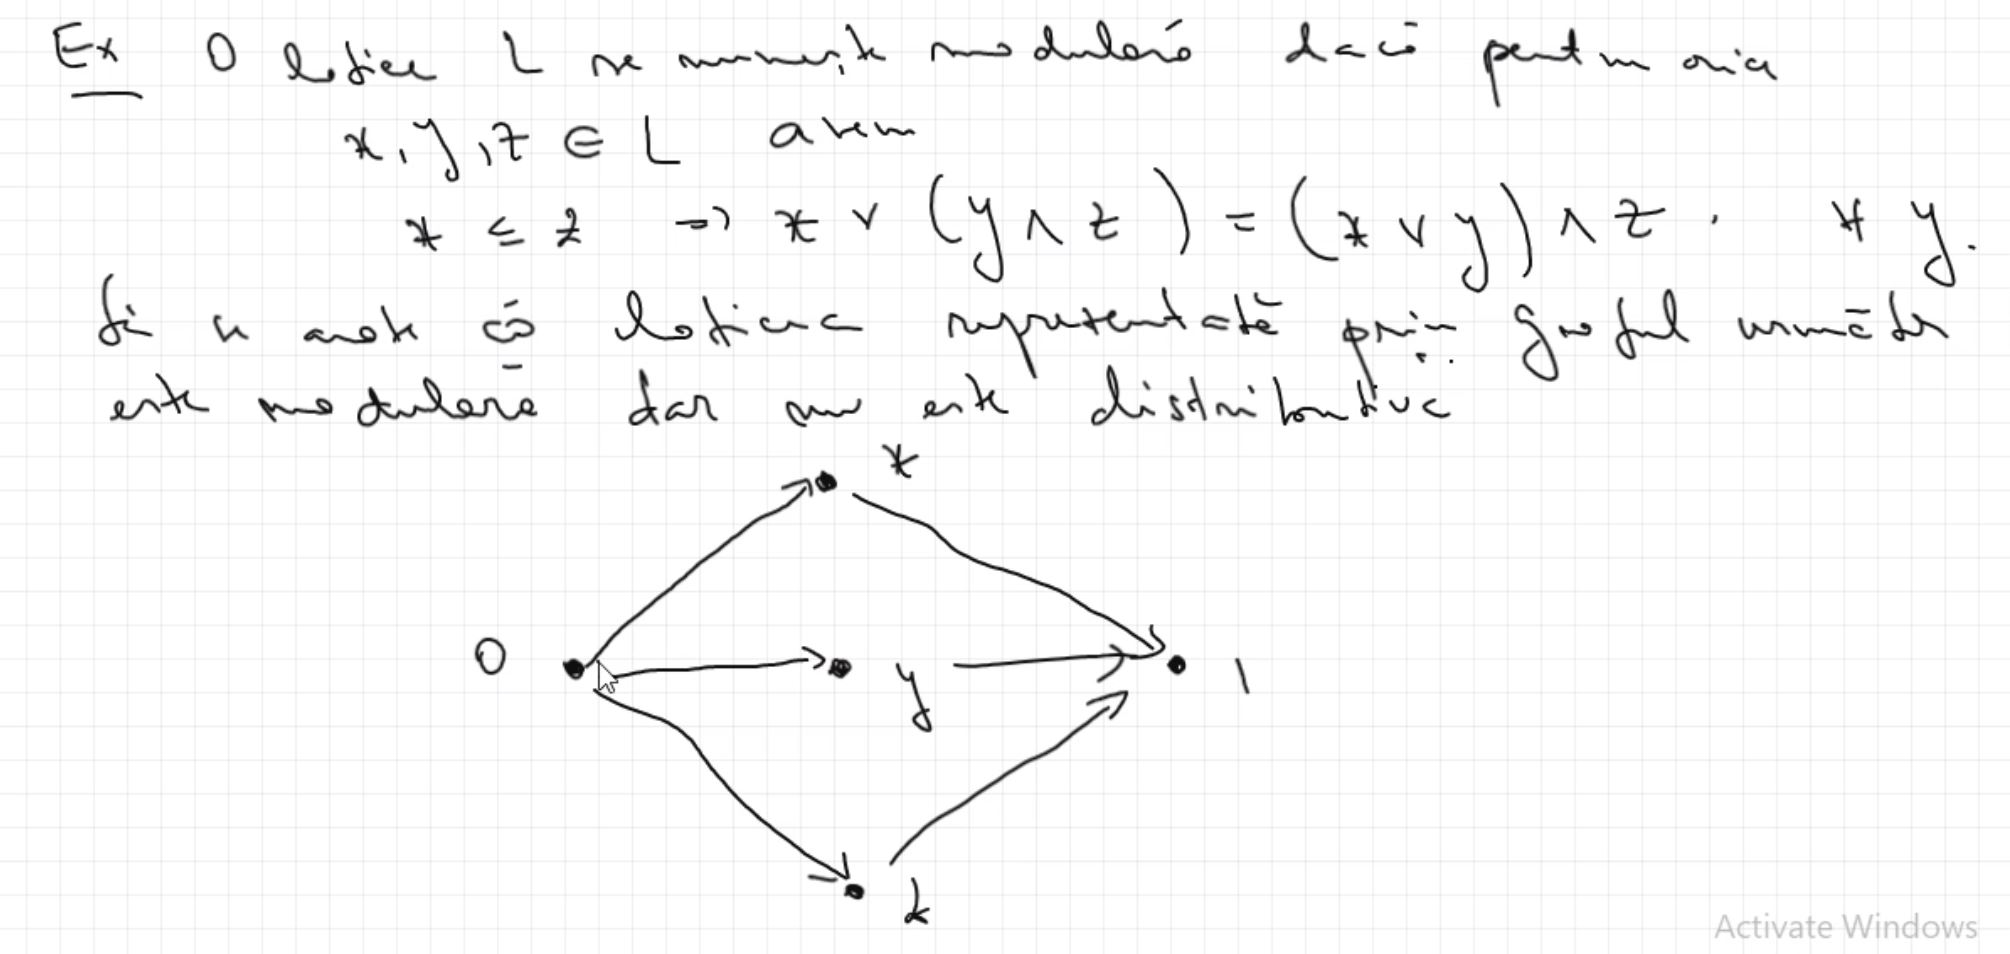 Ex O latice L se numește modulară dacă pentru orice
x, y, z ∈ L avem
x ≤ z => x ∨ (y ∧ z) = (x ∨ y) ∧ z. ∀ y.
Să se arate că laticea reprezentată prin graful următor
este modulară dar nu este distributivă
x
0
y
1
z
Activate Windows